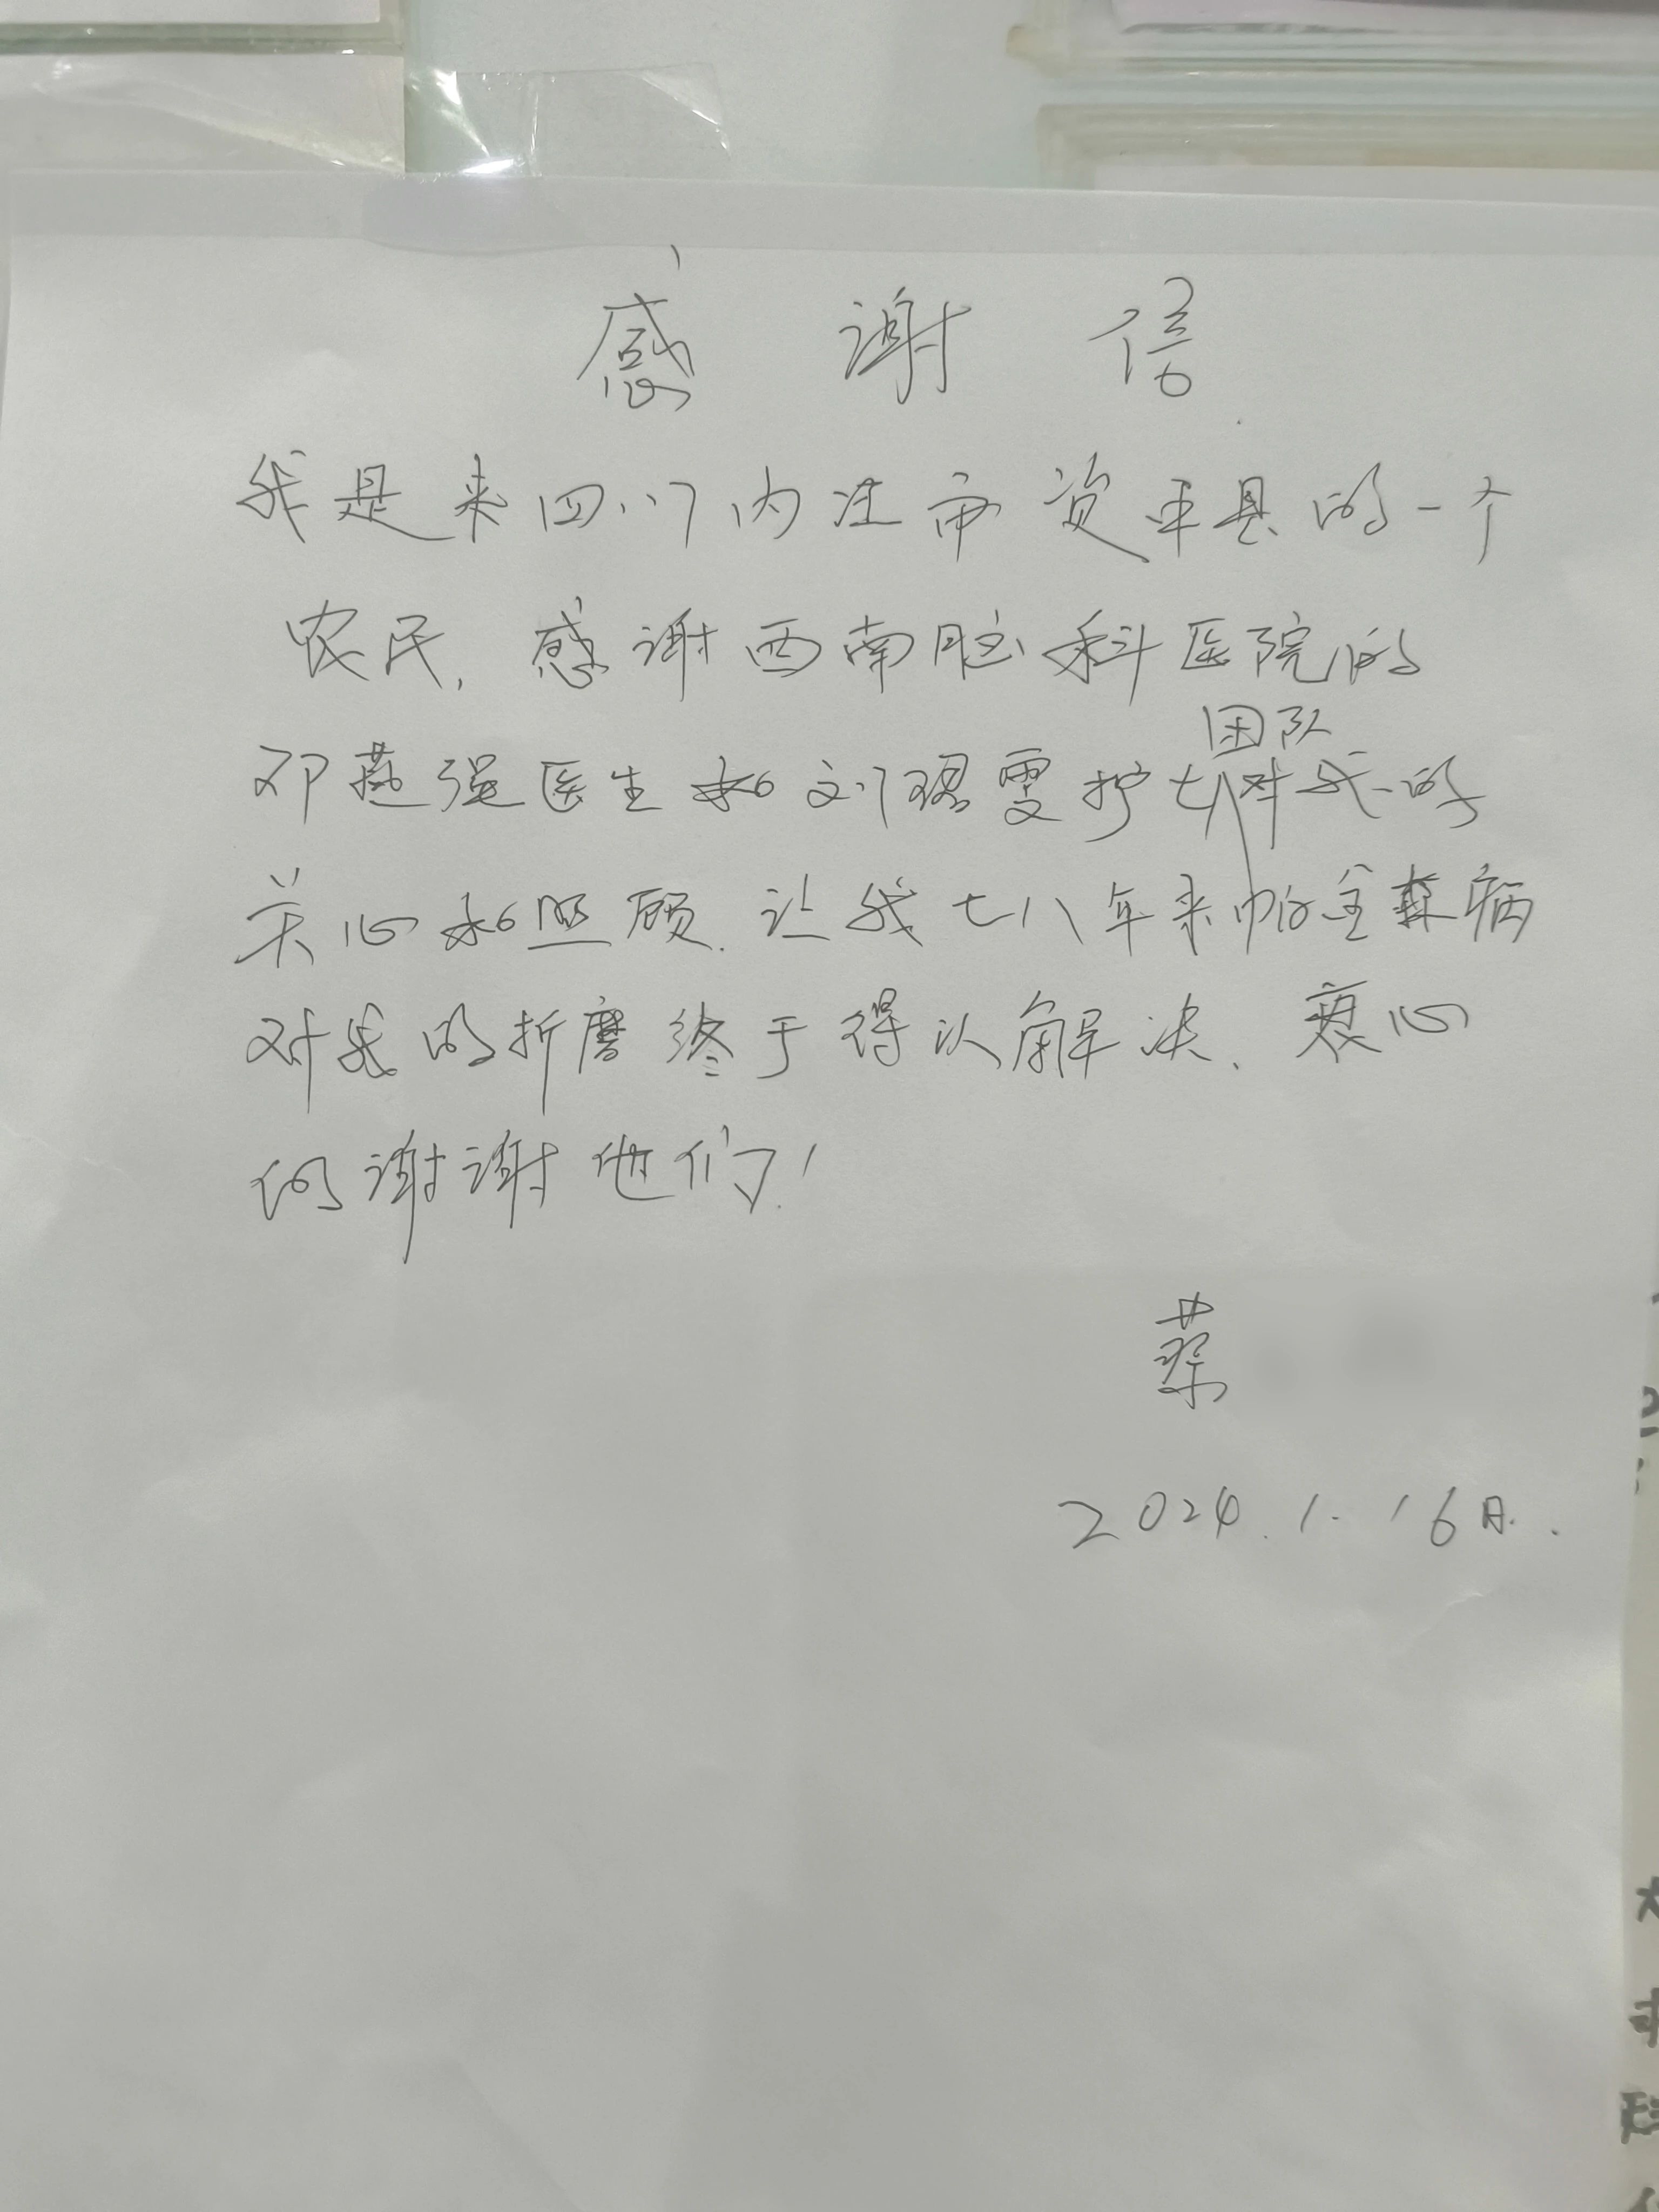 感谢信
我是来四川内江市资中县的一个
农民,感谢西南脑科医院的
团队
邓燕强医生和刘璟雯护士对我的
关心和照顾.让我七八年来帕金森病
对我的折磨终于得以解决、衷心
的谢谢他们!
蔡
2024.1.16日.